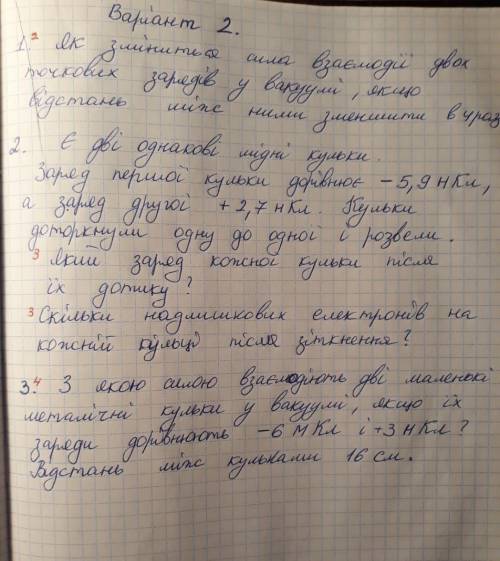 Варіант 2.
1.² Як зміниться сила взаємодії двох
точкових зарядів у вакуумі, якщо
відстань між ними зменшити в 4 раз
2. Є дві однакові мідні кульки.
Заряд першої кульки дорівнює -5,9 нКл,
а заряд другої +2,7 нКл. Кульки
доторкнули одну до одної і розвели.
³ Який заряд кожної кульки після
їх дотику?
³ Скільки надлишкових електронів на
кожній кульці після зіткнення?
3.⁴ З якою силою взаємодіють дві маленькі
металічні кульки у вакуумі, якщо їх
заряди дорівнюють -6 мКл і +3 нКл?
Відстань між кульками 16 см.